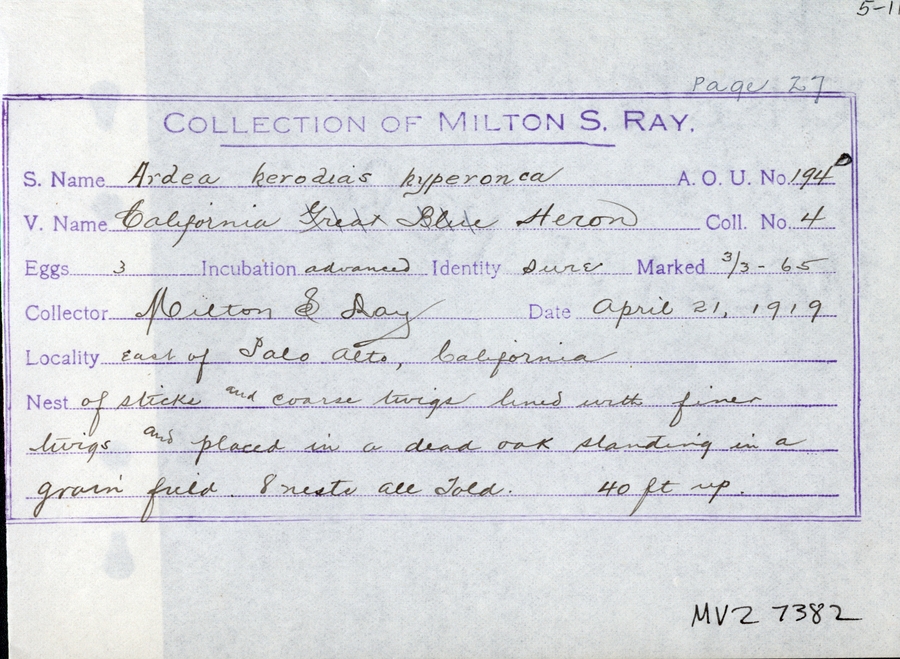 5-11
Page 27
COLLECTION OF MILTON S. RAY.
S. Name Ardea herodias hyperonca A. O. U. No. 194 D
V. Name California Great Blue Heron Coll. No. 4
Eggs 3 Incubation advanced Identity sure Marked 3/3 - 65
Collector Milton S Ray Date April 21, 1919
Locality East of Palo Alto, California
Nest of sticks and coarse twigs lined with finer
twigs and placed in a dead oak standing in a
grain field. 8 nests all told. 40 ft up.
MVZ 7382